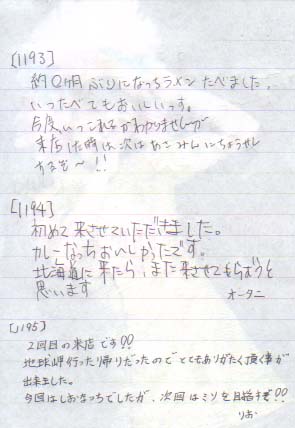 [1193]
約2ヶ月ぶりになっちラメンたべました。
いつたべてもおいしいっす。
今度いつこれるかわかりませんが
来店した時は次はあさみんにちょうせん
するぞ〜!!
[1194]
初めて来させていただきました。
カレーなっちおいしかったです。
北海道に来たら、また来させてもらおうと
思います
オータニ
[1195]
2回目の来店です!!
地球岬行った帰りだったのでとてもありがたく頂く事が
出来ました。
今回はしおなっちでしたが、次回はミソを目指すぞ!!
りお